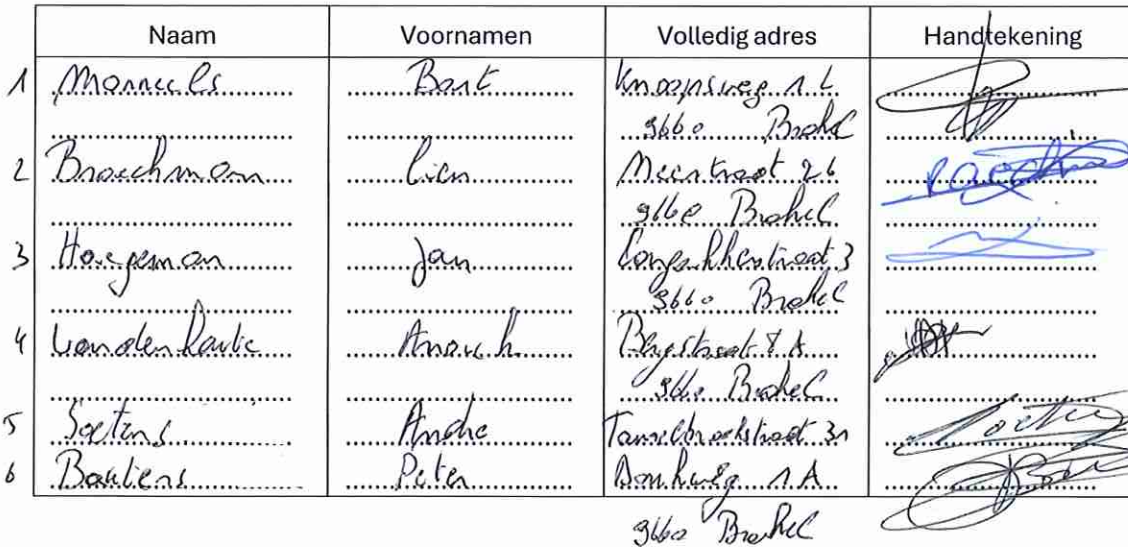 Naam Voornamen Volledig adres Handtekening
1 Mannuels Bart Knoopsweg 1 b
9660 Brakel
2 Braeckman Lien Meirstraat 26
9660 Brakel
3 Haegeman Jan 3
9660 Brakel
4 Vandenhaute Anouck Bergstraat 8 A
9660 Brakel
5 Soetens Andre Tasselbroekstraat 31
6 Bautiens Peter Donkweg 1 A
9660 Brakel